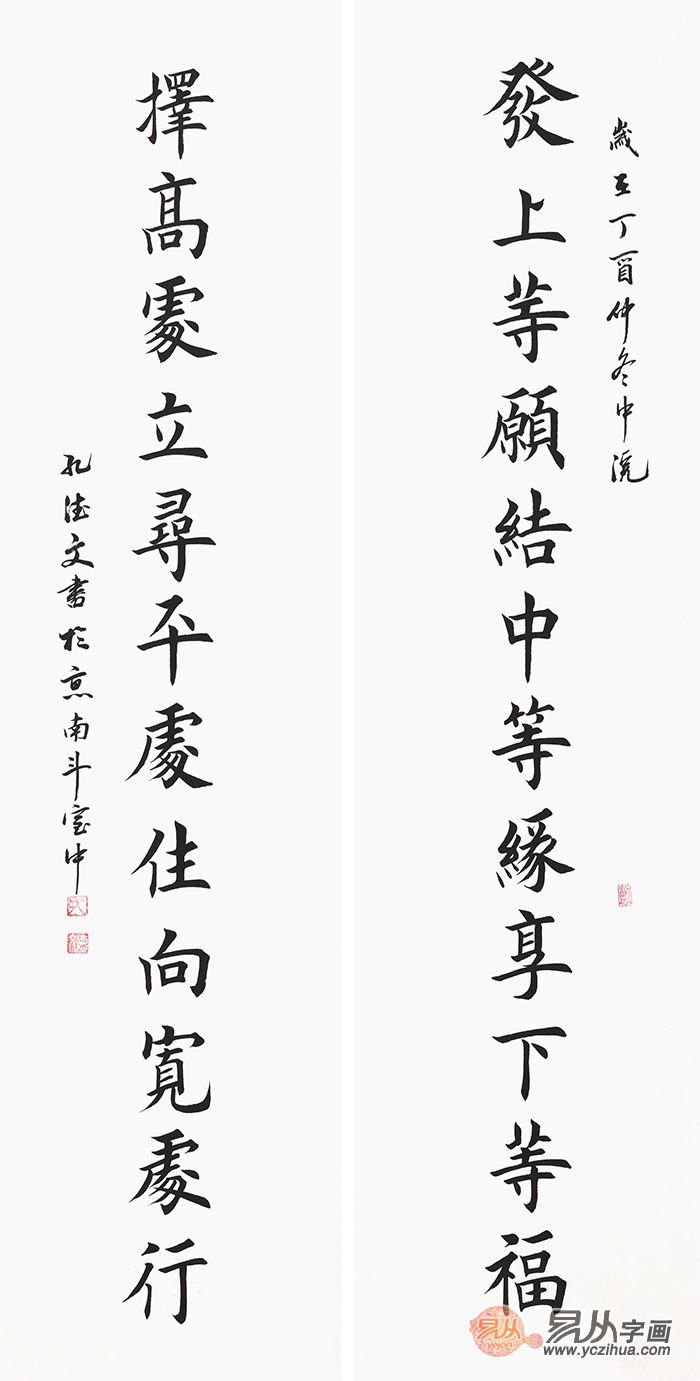 歲在丁酉仲冬中浣
發上等願結中等緣享下等福
擇高處立尋平處住向寬處行
孔德文書於京南斗室中
易从
yicon
易从字画
www.yczihua.com